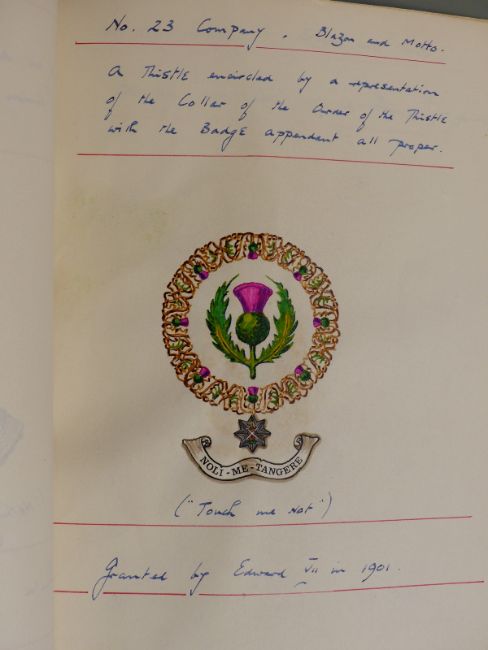 No. 23 Company. Blazon and Motto.
A Thistle encircled by a representation
of the Collar of the Order of the Thistle
with the Badge appendant all proper.
NOLI-ME-TANGERE
("Touch me Not")
Granted by Edward VII in 1901.